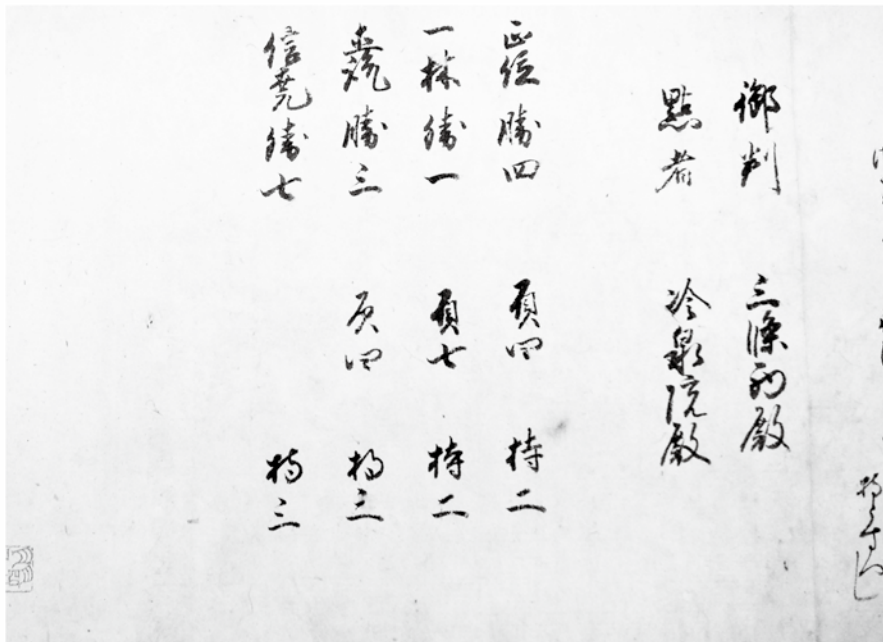 御判 三條西殿
點者 冷泉院殿
正 勝四 負四 持二
一林 勝一 負七 持二
勝三 負四 持三
信堯 勝七 持三